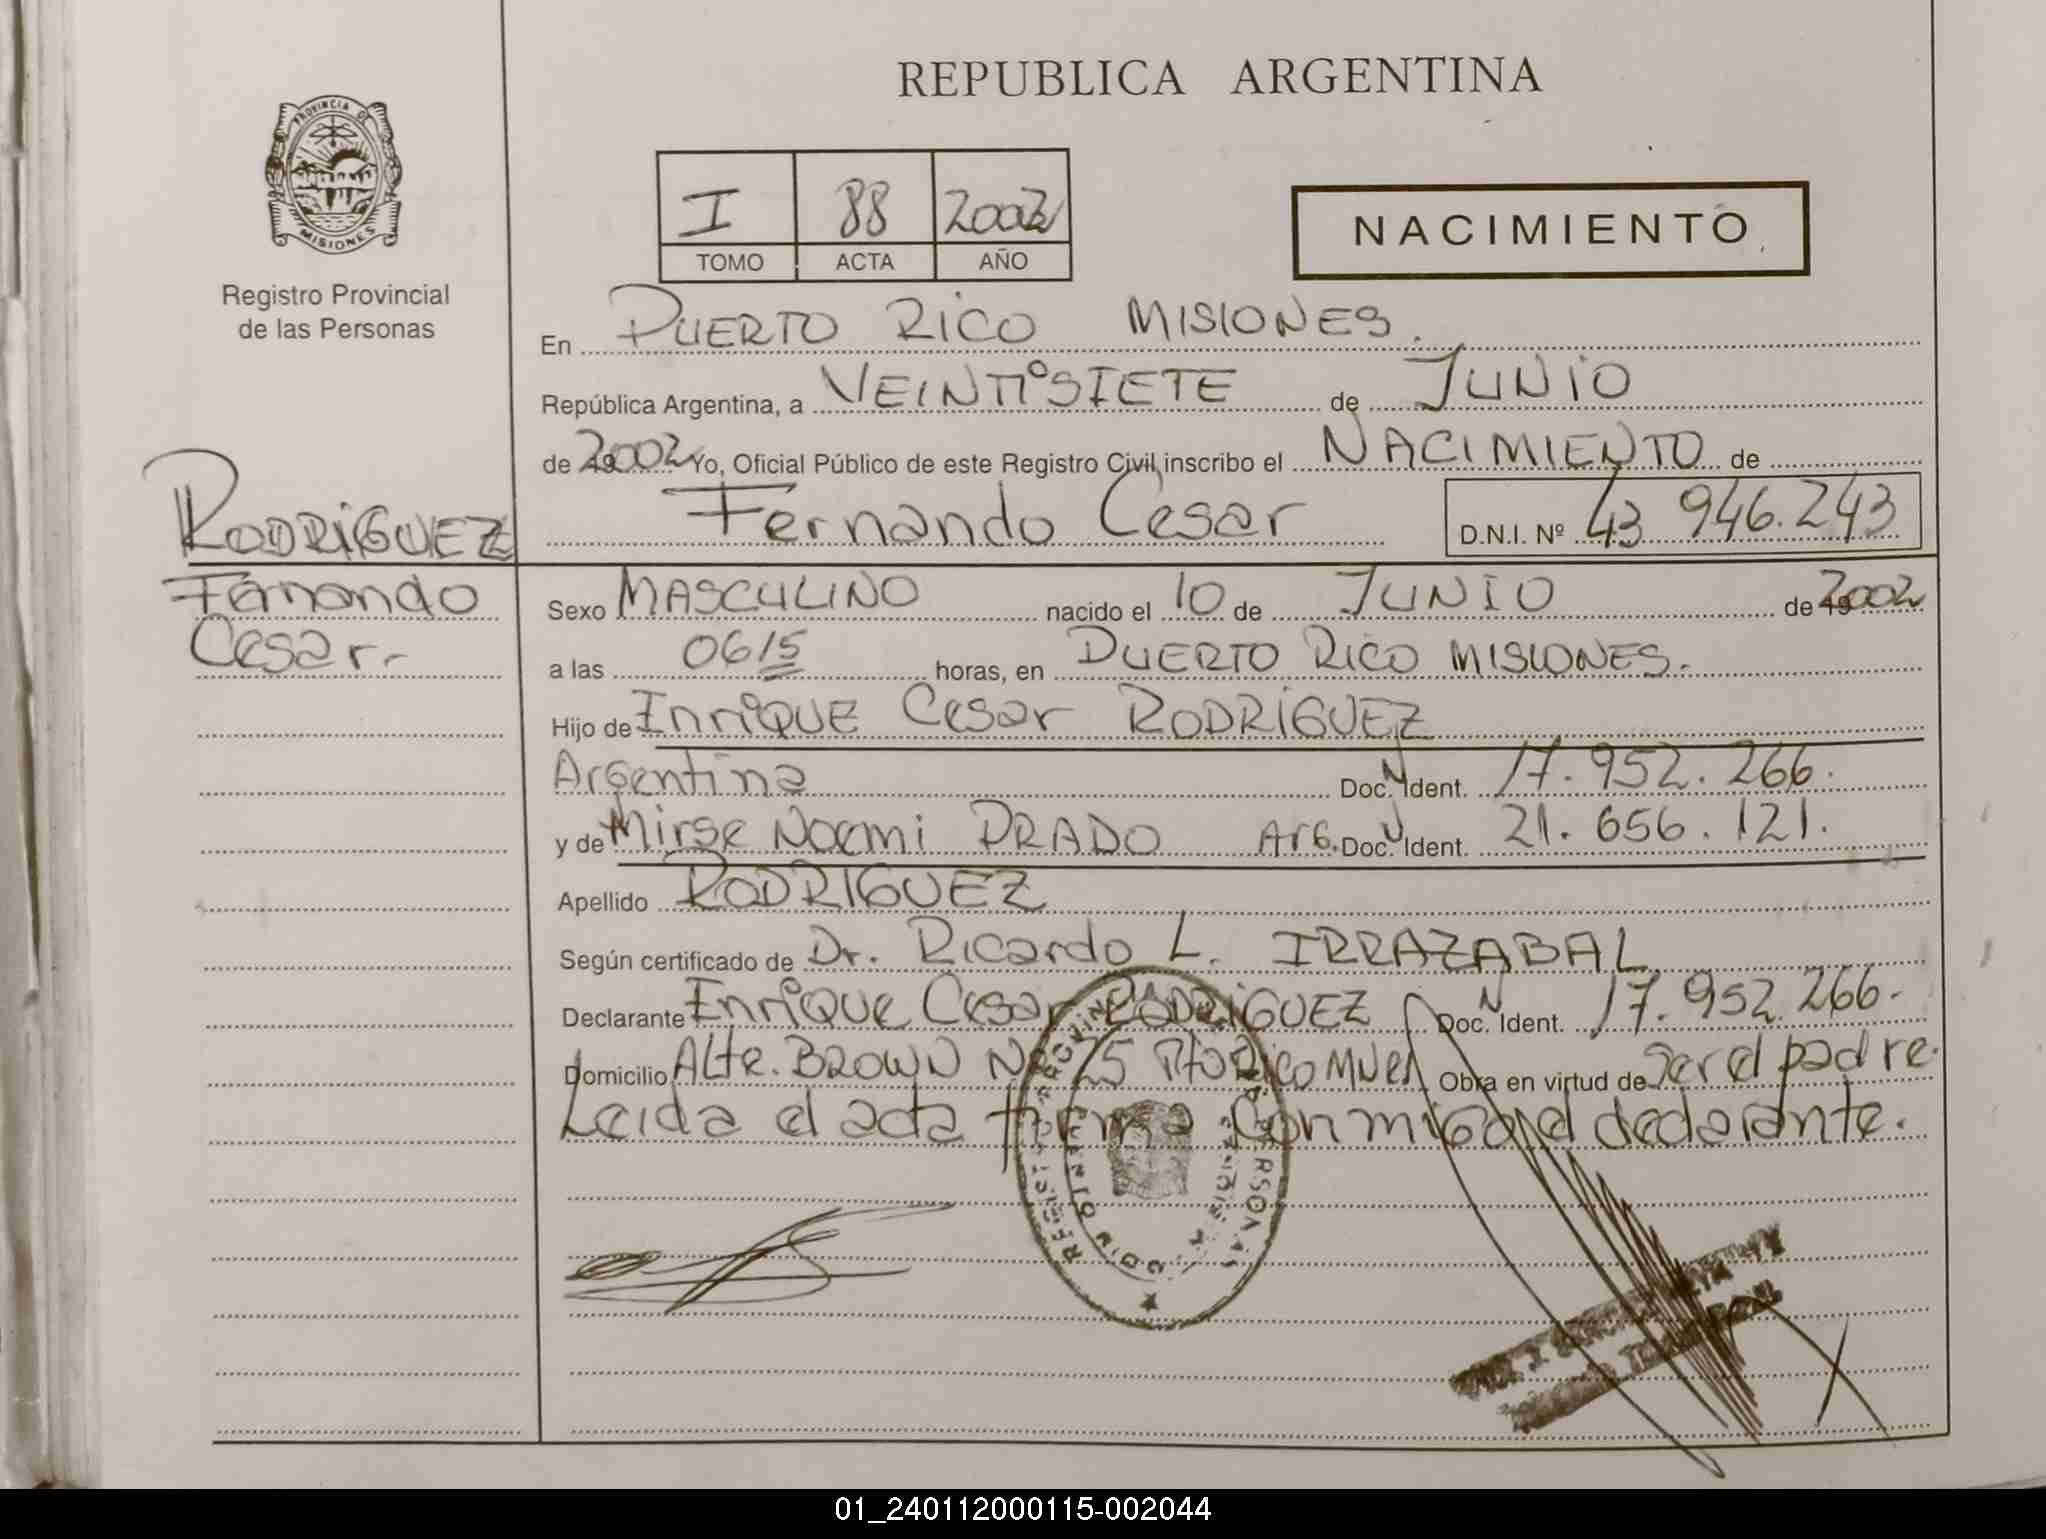 REPUBLICA ARGENTINA
PROVINCIA DE
MISIONES
Registro Provincial
de las Personas
I 88 2002
TOMO ACTA AÑO
NACIMIENTO
En PUERTO RICO MISIONES.
República Argentina, a VEINTISIETE de JUNIO
de 2002 Yo, Oficial Público de este Registro Civil, inscribo el NACIMIENTO de
Fernando Cesar D.N.I. Nº 43 946.243
RODRIGUEZ
Fernando
Cesar.-
Sexo MASCULINO nacido el 10 de JUNIO de 2002
a las 0615 horas, en PUERTO RICO MISIONES.
Hijo de Enrique Cesar RODRIGUEZ
Argentina Doc. N Ident. 17.952.266.
y de Mirse Noemi PRADO Arg. Doc. N Ident. 21.656.121.
Apellido RODRIGUEZ
Según certificado de Dr. Ricardo L. IRRAZABAL
Declarante Enrique Cesar RODRIGUEZ Doc. N Ident. 17.952.266.
Domicilio Alte. BROWN Nº 25 Pto Rico Mnes Obra en virtud de Ser el padre.
Leida el acta firma conmigo el declarante.
01_240112000115-002044